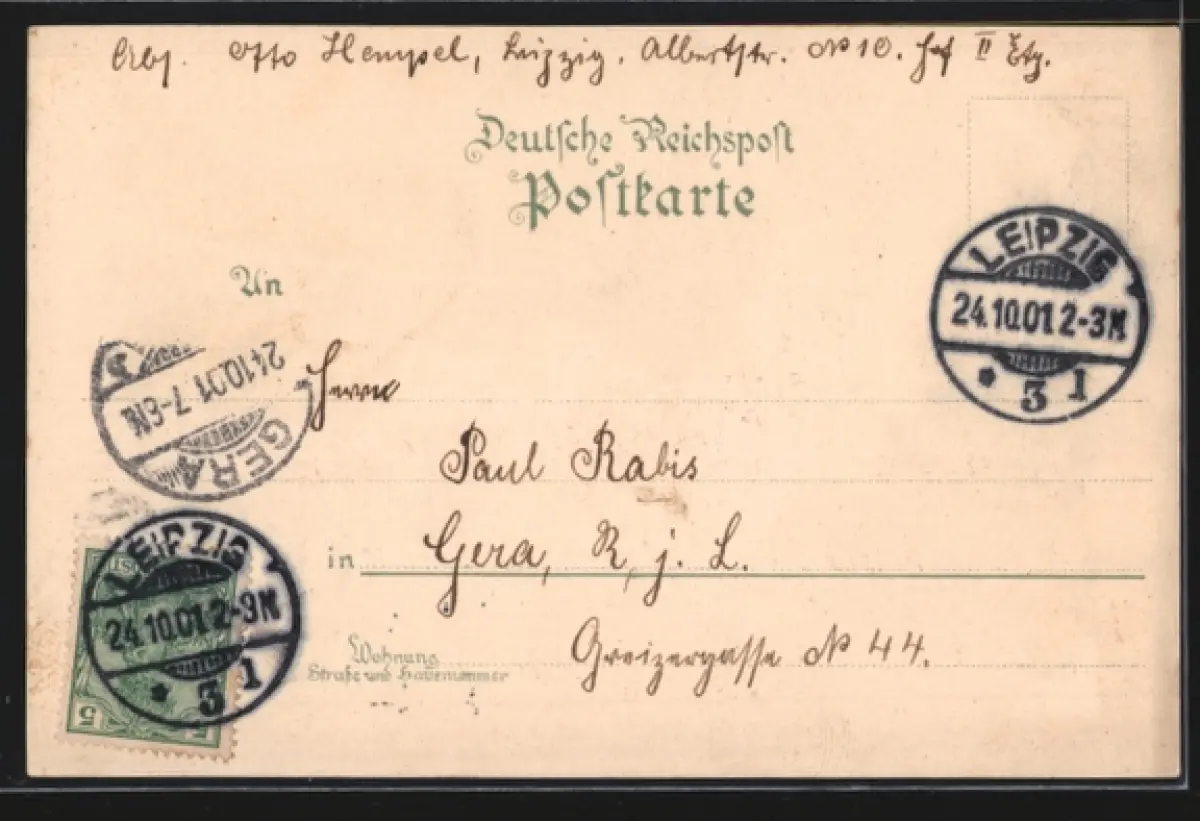 Abs. Otto Hempel, Leipzig. Albertstr. No 10. Hof II Etg.
Deutsche Reichspost
Postkarte
LEIPZIG
24.10.01 2-3N
* 3 1
An
24.10.01 7-8N
GERA
Herrn
Paul Rabis
in Gera, R. j. L.
LEIPZIG
24.10.01 2-3N
* 3 1
Wohnung
Straße und Hausnummer
Greizergasse No 44.
5